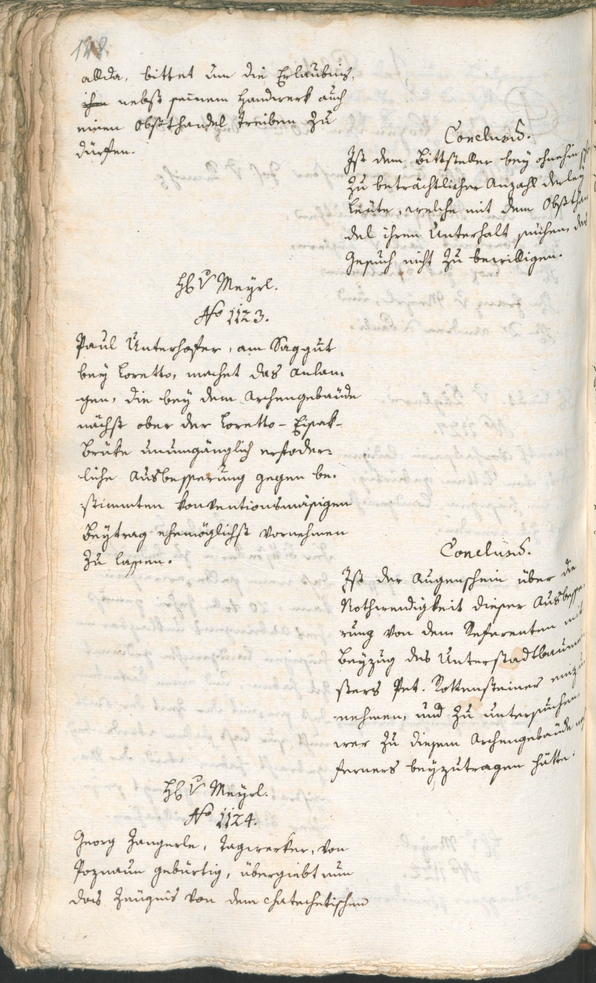 148.
allda, bittet um die Erlaubnis,
ihm nebst seinem Handwerk auch
einen Obsthandel treiben zu
dürfen.
Conclusũ.
Ist dem Bittsteller bey ohnehin
zu beträchtlicher Anzahl derley
Leute, welche mit dem Obsthan
del ihren Unterhalt suchen, das
Gesuch nicht zu bewilligen.
H. v Meyrl.
No 1123.
Paul Unterhofer, am Saggut
bey Loretto, machet das Anlan¬
gen, die bey dem Archengebäude
nächst ober der Loretto-Eisak¬
brüke unumgänglich erforder¬
liche Ausbesserung gegen be¬
stimmten konventionsmäsigen
Beytrag ehemöglichst vornehmen
zu lassen.
Conclusũ.
Ist der Augenschein über die
Nothwendigkeit dieser Ausbesse¬
rung von dem Referenten mit
Beyzug des Unterstadtbaumei
sters Pet. Rottensteiner einzu
nehmen, und zu untersuchen
wer zu diesem Archengebäude
ferners beyzutragen hätte.
H. v Meyrl.
No 1124.
Georg Zangerle, Tagwerker, von
Poznaun gebürtig, übergiebt nun
das Zeugnis von dem chatechetischen